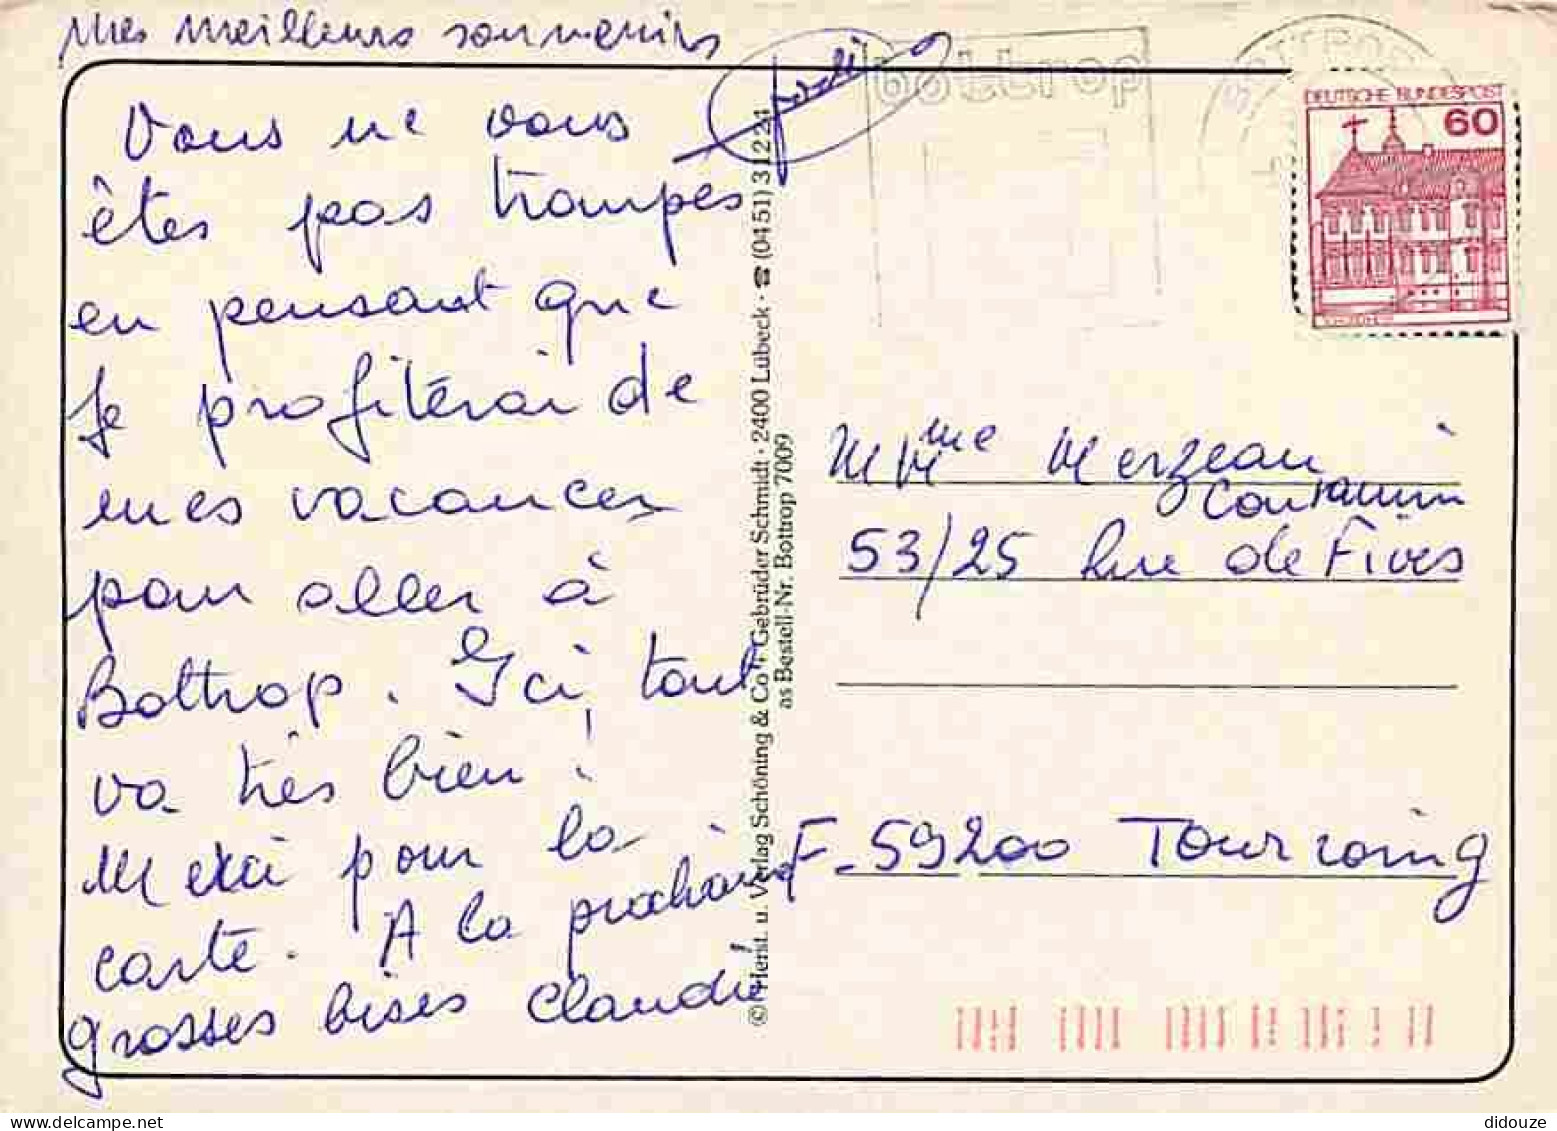 Mes meilleurs souvenirs
Vous ne vous
êtes pas trompés
en pensant que
je profiterai de
mes vacances
pour aller à
Bottrop. Ici, tout
va très bien !
Merci pour la
carte. A la prochaine
grosses bises Claudie
© Herst. u. Verlag Schöning & Co + Gebrüder Schmidt · 2400 Lübeck · ☎ (0451) 31224
as Bestell-Nr. Bottrop 7009
bottrop
BOTTROP
DEUTSCHE BUNDESPOST
60
M Mme Merzeau
53/25 Rue de Fives
F-59200 Tourcoing
didouze